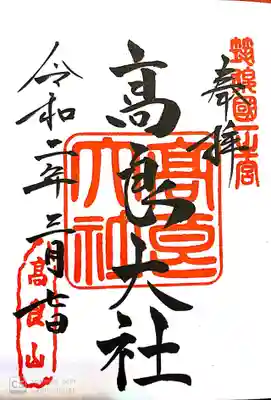 筑後國一宮
奉拝
高良大社
高良大社
令和二年三月吉日
高良山